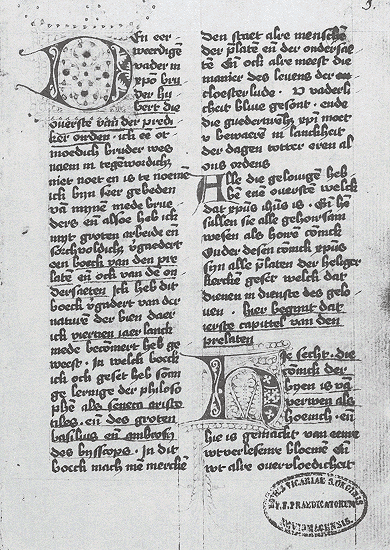 Den eer
weerdigē
vader in
xpo bru
der hu
bert die
ouerste van der predi
ker orden · ick ee ot
moedich bruder wes
naem in tegenwordich
niet noet en is te noemē
ick byn seer gebeden
vā mynē mede brue
ders en alsoe heb ick
myt groten arbeide eñ
v̄gadert
een boeck van den pre
laten eñ ock van de on
dersaeten Ick heb dit
boeck v̄gadert van der
naturē der bien daer
ick viertien iaer lanck
mede becōmert heb ge
weest · In welck boeck
ick och geset heb som
ge leringe der philoso
phē als seneca aristo
tiles · eñ des groten
basilius eñ ambrosij
des bysscops · In dit
boeck mach me merckē
den staet alre menschē
der p̄laten eñ der ondersae
te Eñ ock alre meest die
manier des leuens der
cloester lude · v vaderli
cheit blive gesont · ende
die guedertierē xp̄s moet
v bewaerē in lanckheit
der dagen totter eren al
ons ordens
Alle die gelouigē heb
bē enē ouerstē welck
dat xpūs ihūs is · Eñ hē
sullen sie alle gehorsam
wesen als horē cōnick
Onder desen cōnick xpūs
syn alle p̄laten der heiliger
kercke geset welck dat
dienen in dienste des gelo
uen · hier begynt dat
erste capittel van den
prelaten
Hie secht · die
cōnick der
byen is vā
verwen als
hoenich · eñ
hie is gemackt van eenre
wtverlesenre bloemē Eñ
wt alre overvloedicheit
S. ORDINIS
FF. PRÆDICATORUM
NEOMAGENSIS